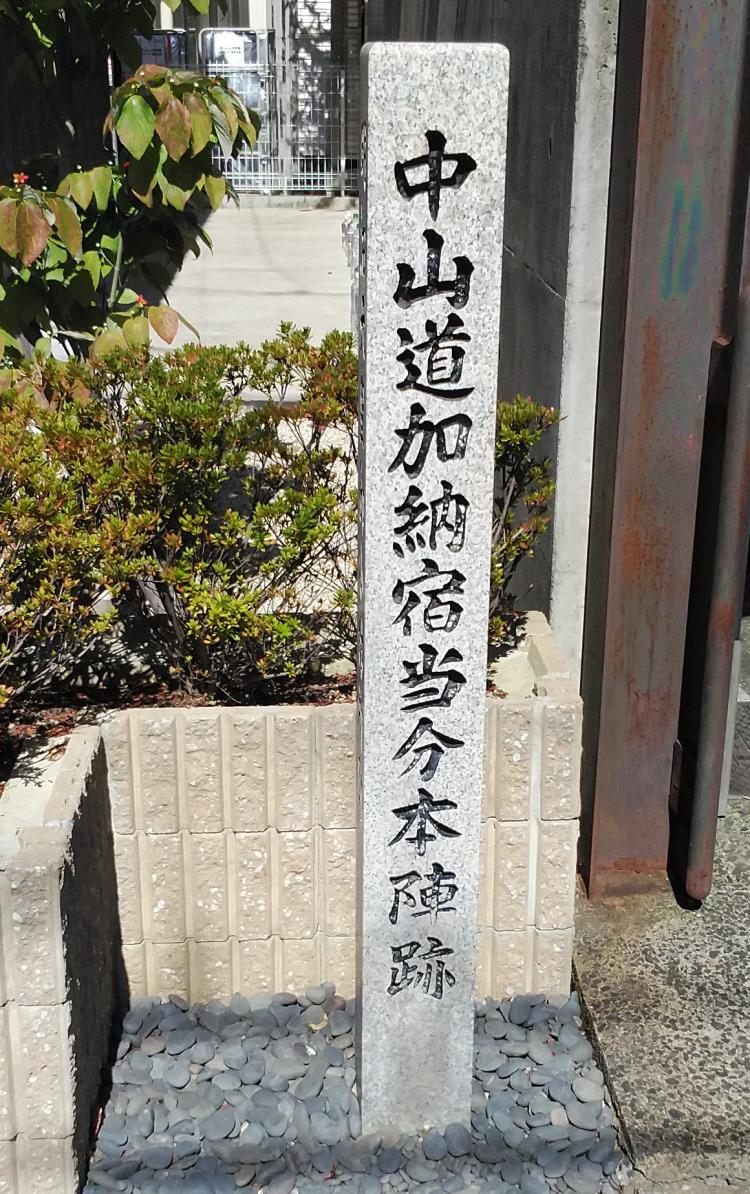 中山道加納宿当分本陣跡